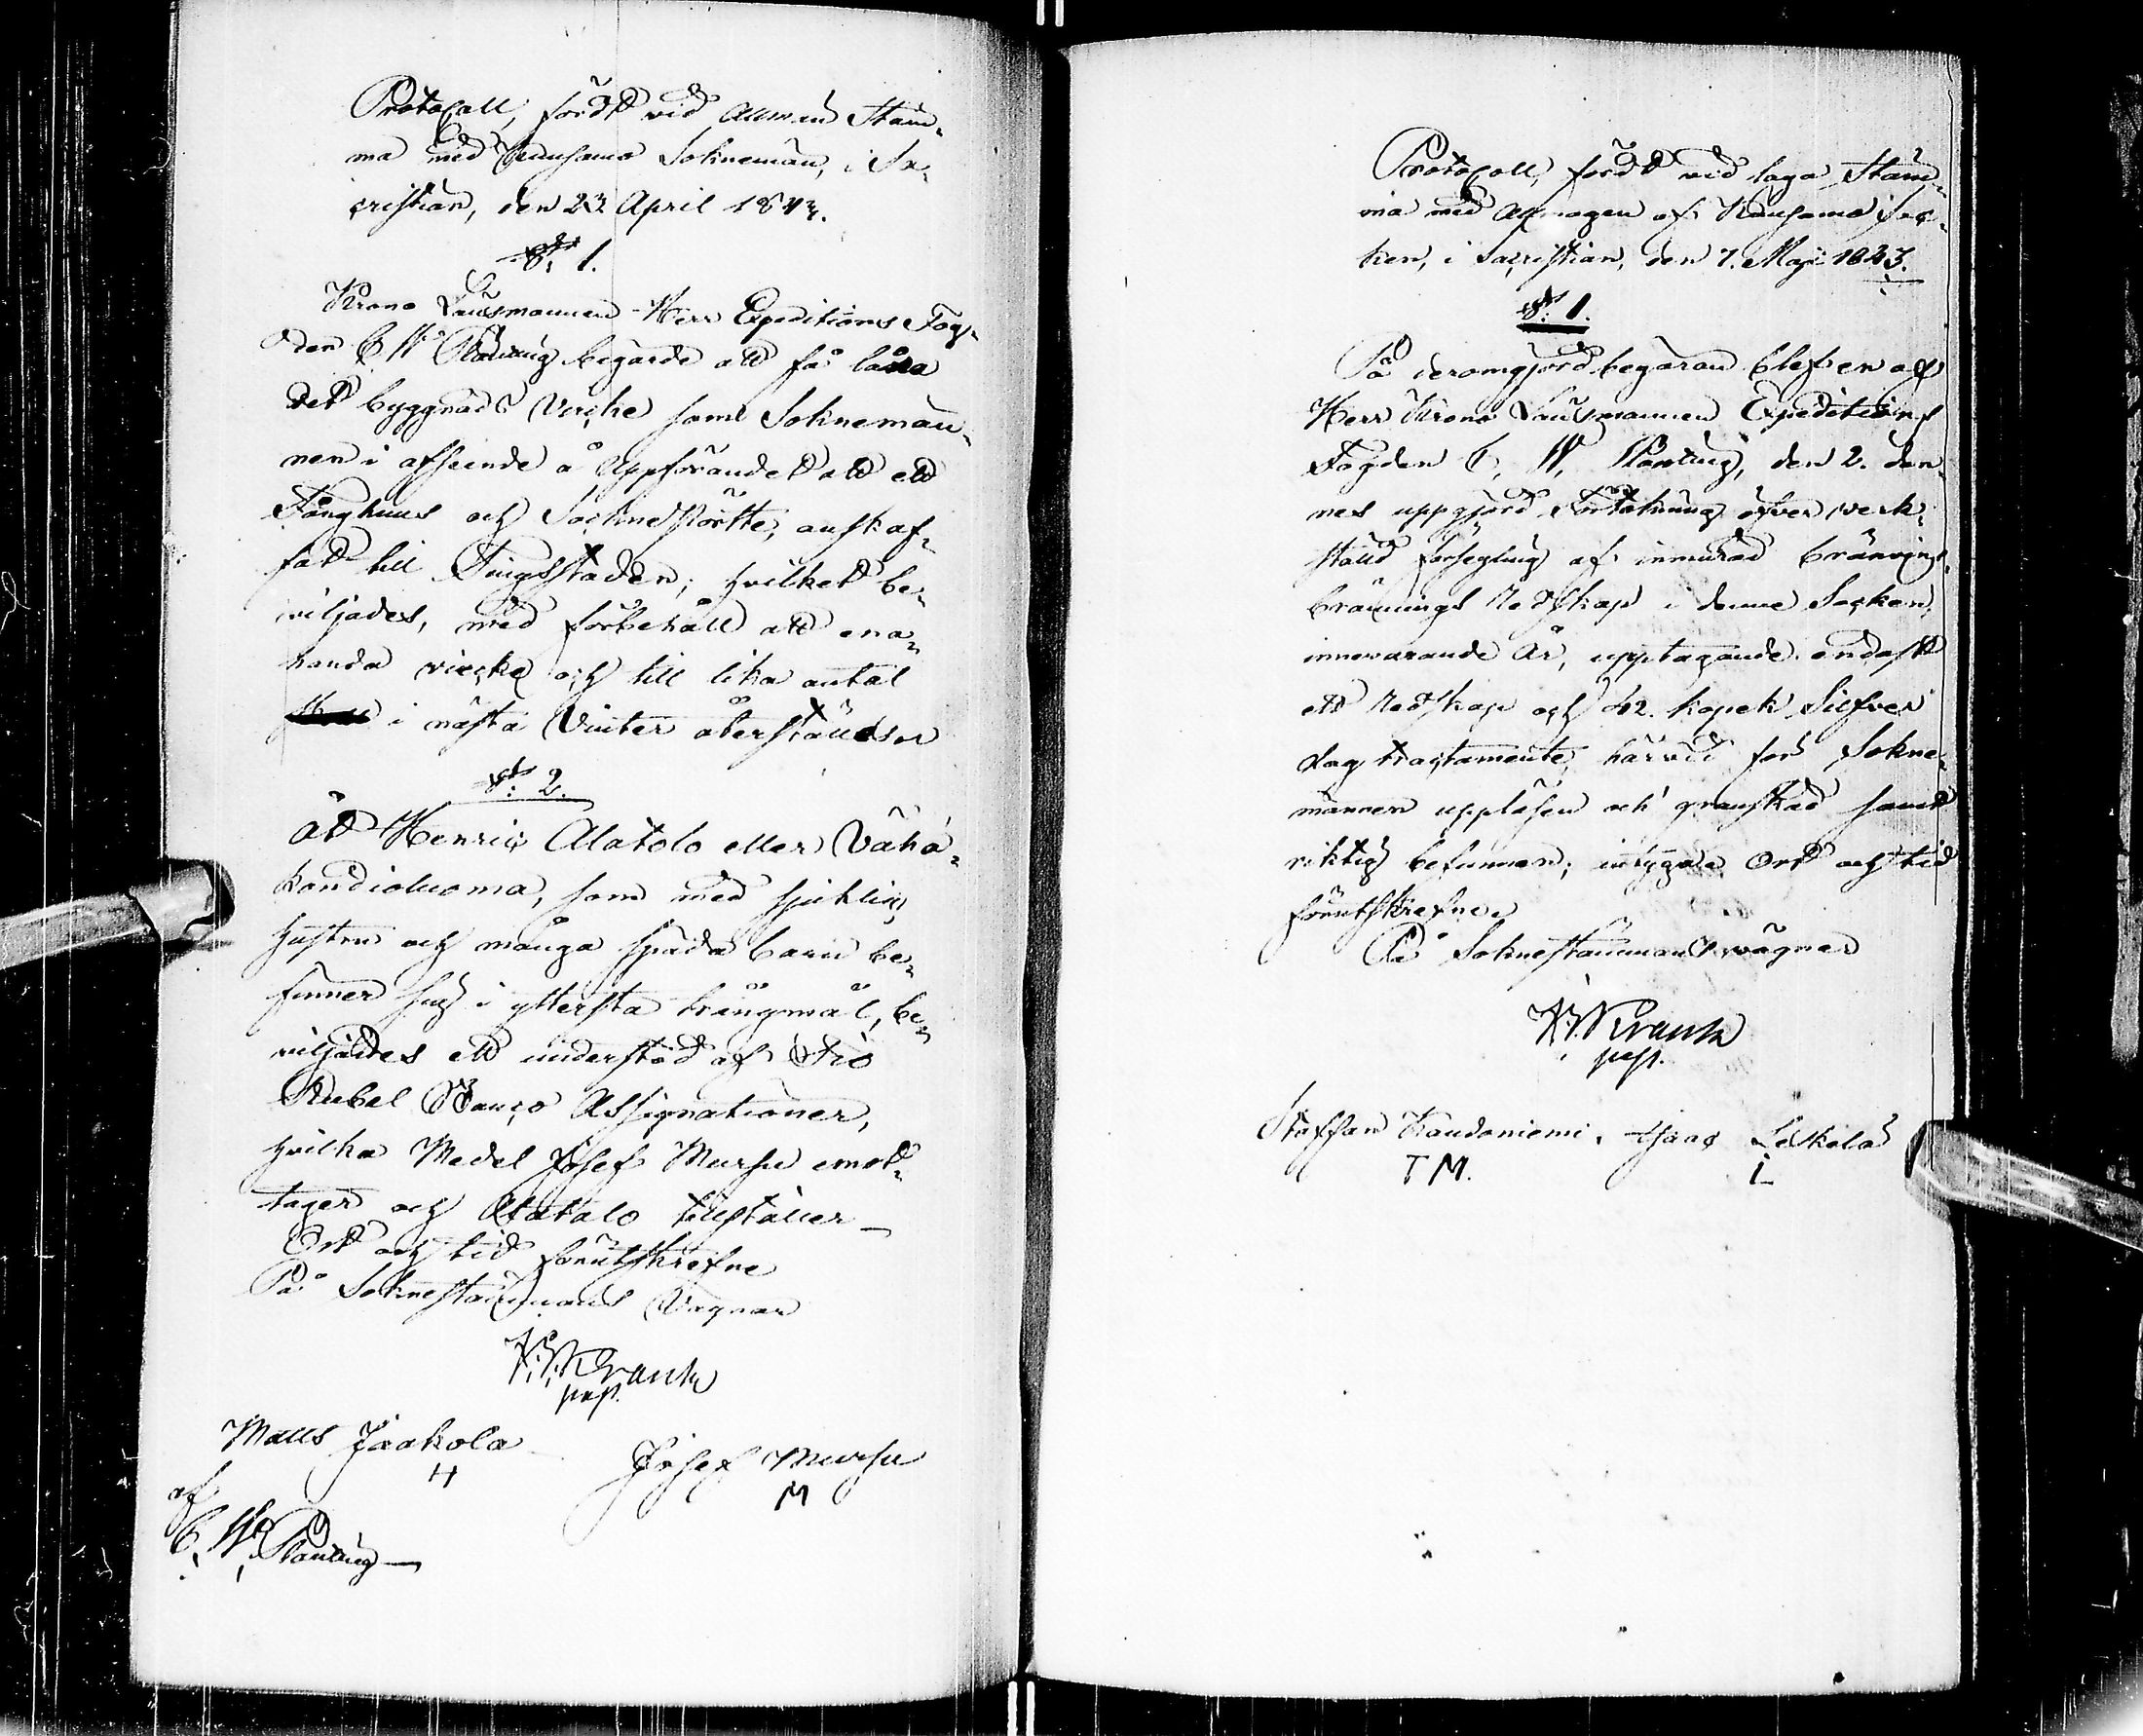 Protocoll, fördt vid allmän Stäm-
ma med Kuusamo Soknemän, i Sa-
cristian, den 23 April 1843.
§. 1.
Krono Länsmannen Herr Expeditions Fog-
den C. W. Planting begärde att få låna
det byggnads virke som Soknemän-
nen i afseende å uppförandet att ett
Fånghus och Sockne Pörtte, anskaf-
fat till Tingsstaden; hvilket be-
viljades, med förbehåll att ena-
handa virke och till lika antal
i nästa Vinter återställdes
§. 2.
Åt Henric Alatalo eller Vähä-
kandioluoma, som med sjuklig
hustru och många späda barn be-
finner sig i yttersta trångmål, be-
viljades ett understöd af Tio
Rubel Banco Assignationer,
hvilka Medel Josef Mursu emot-
tager och Alatalo tillställer —
Ort och tid förutskrefne
På Soknestämmans Vägnar
Krank
past.
Matts Jaakola
H
Josef Mursu
M
af
C. W. Planting —
Protocoll, fördt vid laga Stäm-
ma med Allmogen af Kuusamo Soc-
ken, i Sacristian, den 7. Maji 1843.
§. 1.
På derom gjord begäran blef en af
Herr Krono Länsmannen Expeditions
Fogden C. W. Planting, den 2. den-
nes uppgjord Förtekning öfver verk-
ställd försegling af inmurad bränvins
brännings Redskap i denne Socken,
innevarande År, upptagande endast
ett Redskap och 42. kopek Silfver
dagtractamente, härvid för Sokne-
männen uppläsen och granskad samt
riktig befunnen; intygas Ort och tid
förutskrefne.
På Soknestämmans vägnar
Krank
past.
Staffan Kandoniemi. Isaac Leskelä
T M. I